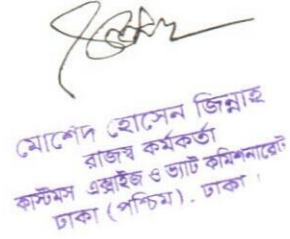 মোশেদ হোসেন জিন্নাহ
রাজস্ব কর্মকর্তা
কাস্টমস এক্সাইজ ও ভ্যাট কমিশনারেট
ঢাকা (পশ্চিম). ঢাকা।